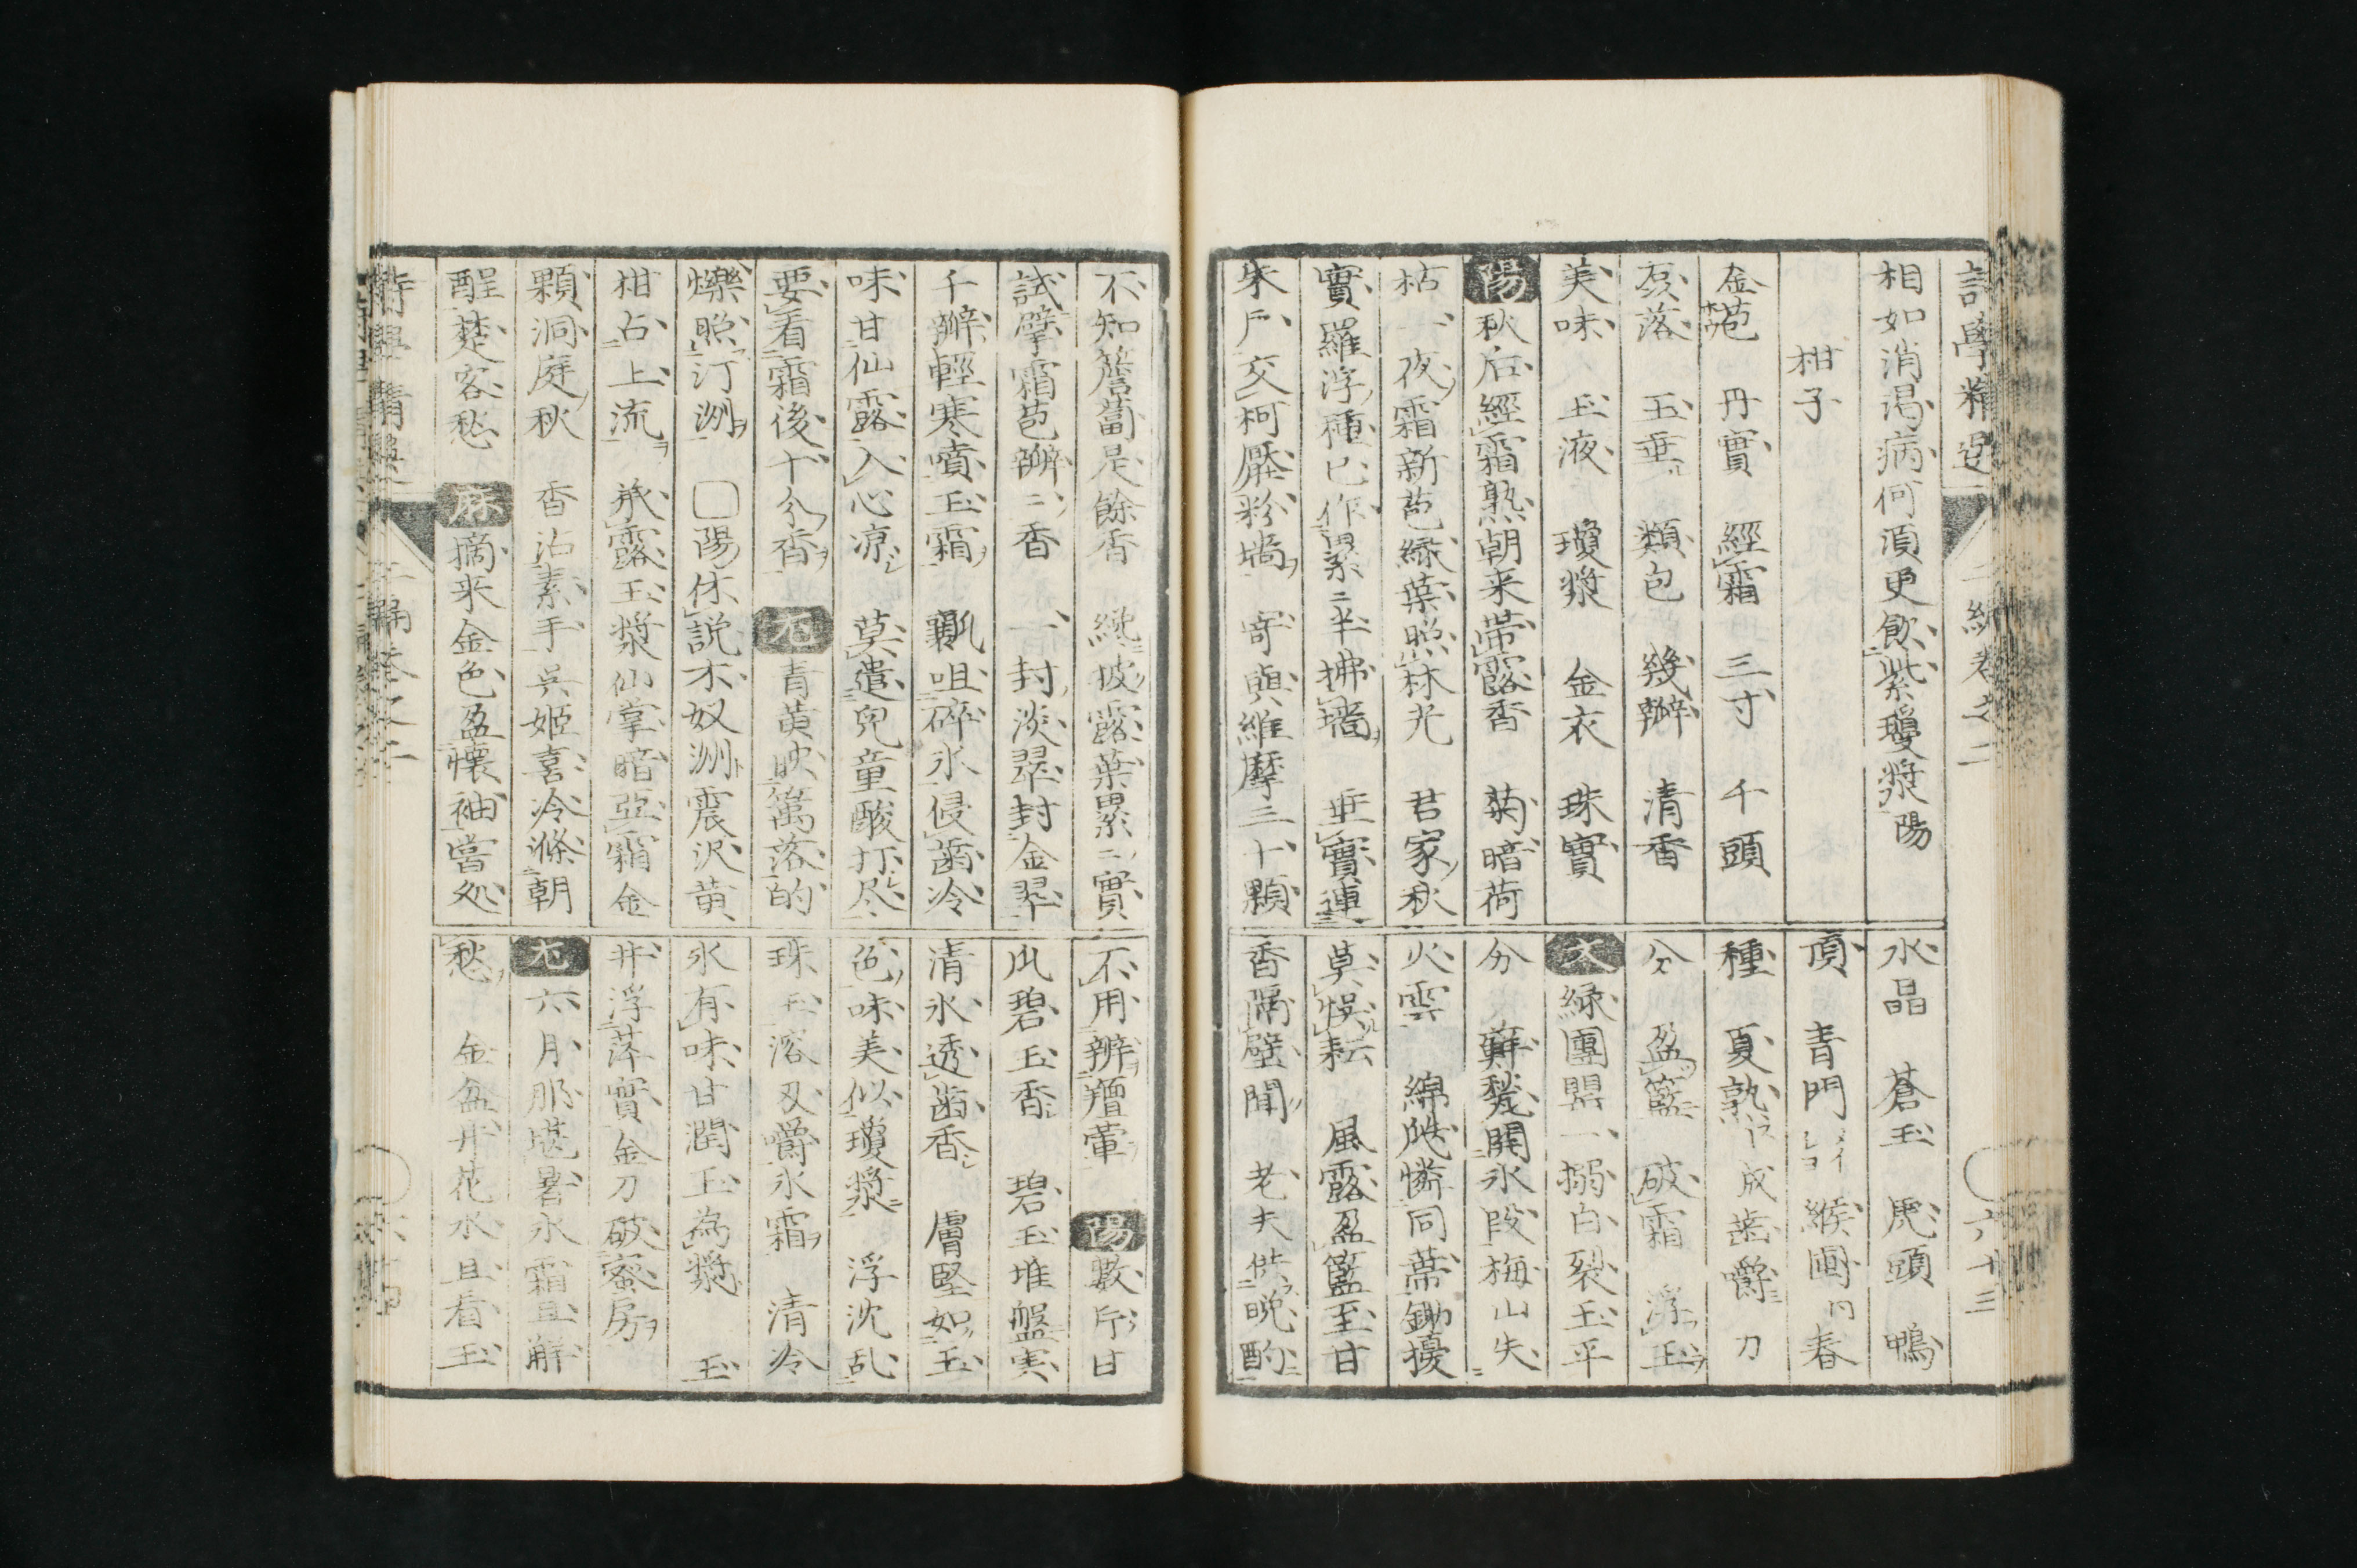 相如消渇病何須更飲紫瓊漿陽
柑子
金苞 丹實 經霜 三寸 千頭
落 玉垂 類包 幾瓣 清香
美味 玉液 瓊漿 金衣 珠實
陽 秋后經霜熟朝来帯露香 菊暗荷
枯一夜霜新苞緑葉照林光 君家秋
實羅浮種已作累〻半拂墻 垂實連
朱戸交柯壓粉墻 寄與維摩三十顆
水晶 蒼玉 虎頭 鴨
頂 青門 緱圃 春
種 夏熟 成 歯嚼 刀
分 盈籃 破霜 浮玉
緑團 一搦白裂玉平
分 蘇甃開氷段梅山失
火雲 綿憐同蔕鋤擾
莫悞耘 風露盈籃至甘
香隔壁聞 老夫供晩酌
不知簷蔔是餘香 纔披露葉累〻實
試擘霜苞瓣〻香 一封淡翠封金翠
千瓣輕寒噴玉霜 咀碎氷侵歯冷
味甘仙露入心凉 莫遣兒童酸打尽
要看霜後十分香 青黄映籬落的
爍照汀洲 陽休説木奴洲震沢黄
柑占上流 承露玉漿仙掌暗亞霜金
顆洞庭秋 香沾素手呉姫喜冷滌朝
酲楚客愁 摘来金色盈懐袖嘗処
不用辨羶葷 陽 數片甘
碧玉香 碧玉堆盤実
清氷透歯香 膚堅如玉
色味美似瓊漿 浮沈乱
珠玉溶刄嚼氷霜 清冷
氷有味甘潤玉為漿 玉
井浮萍實金刀破蜜房
六月那堪暑氷霜且解
愁 金盆井花水且看玉